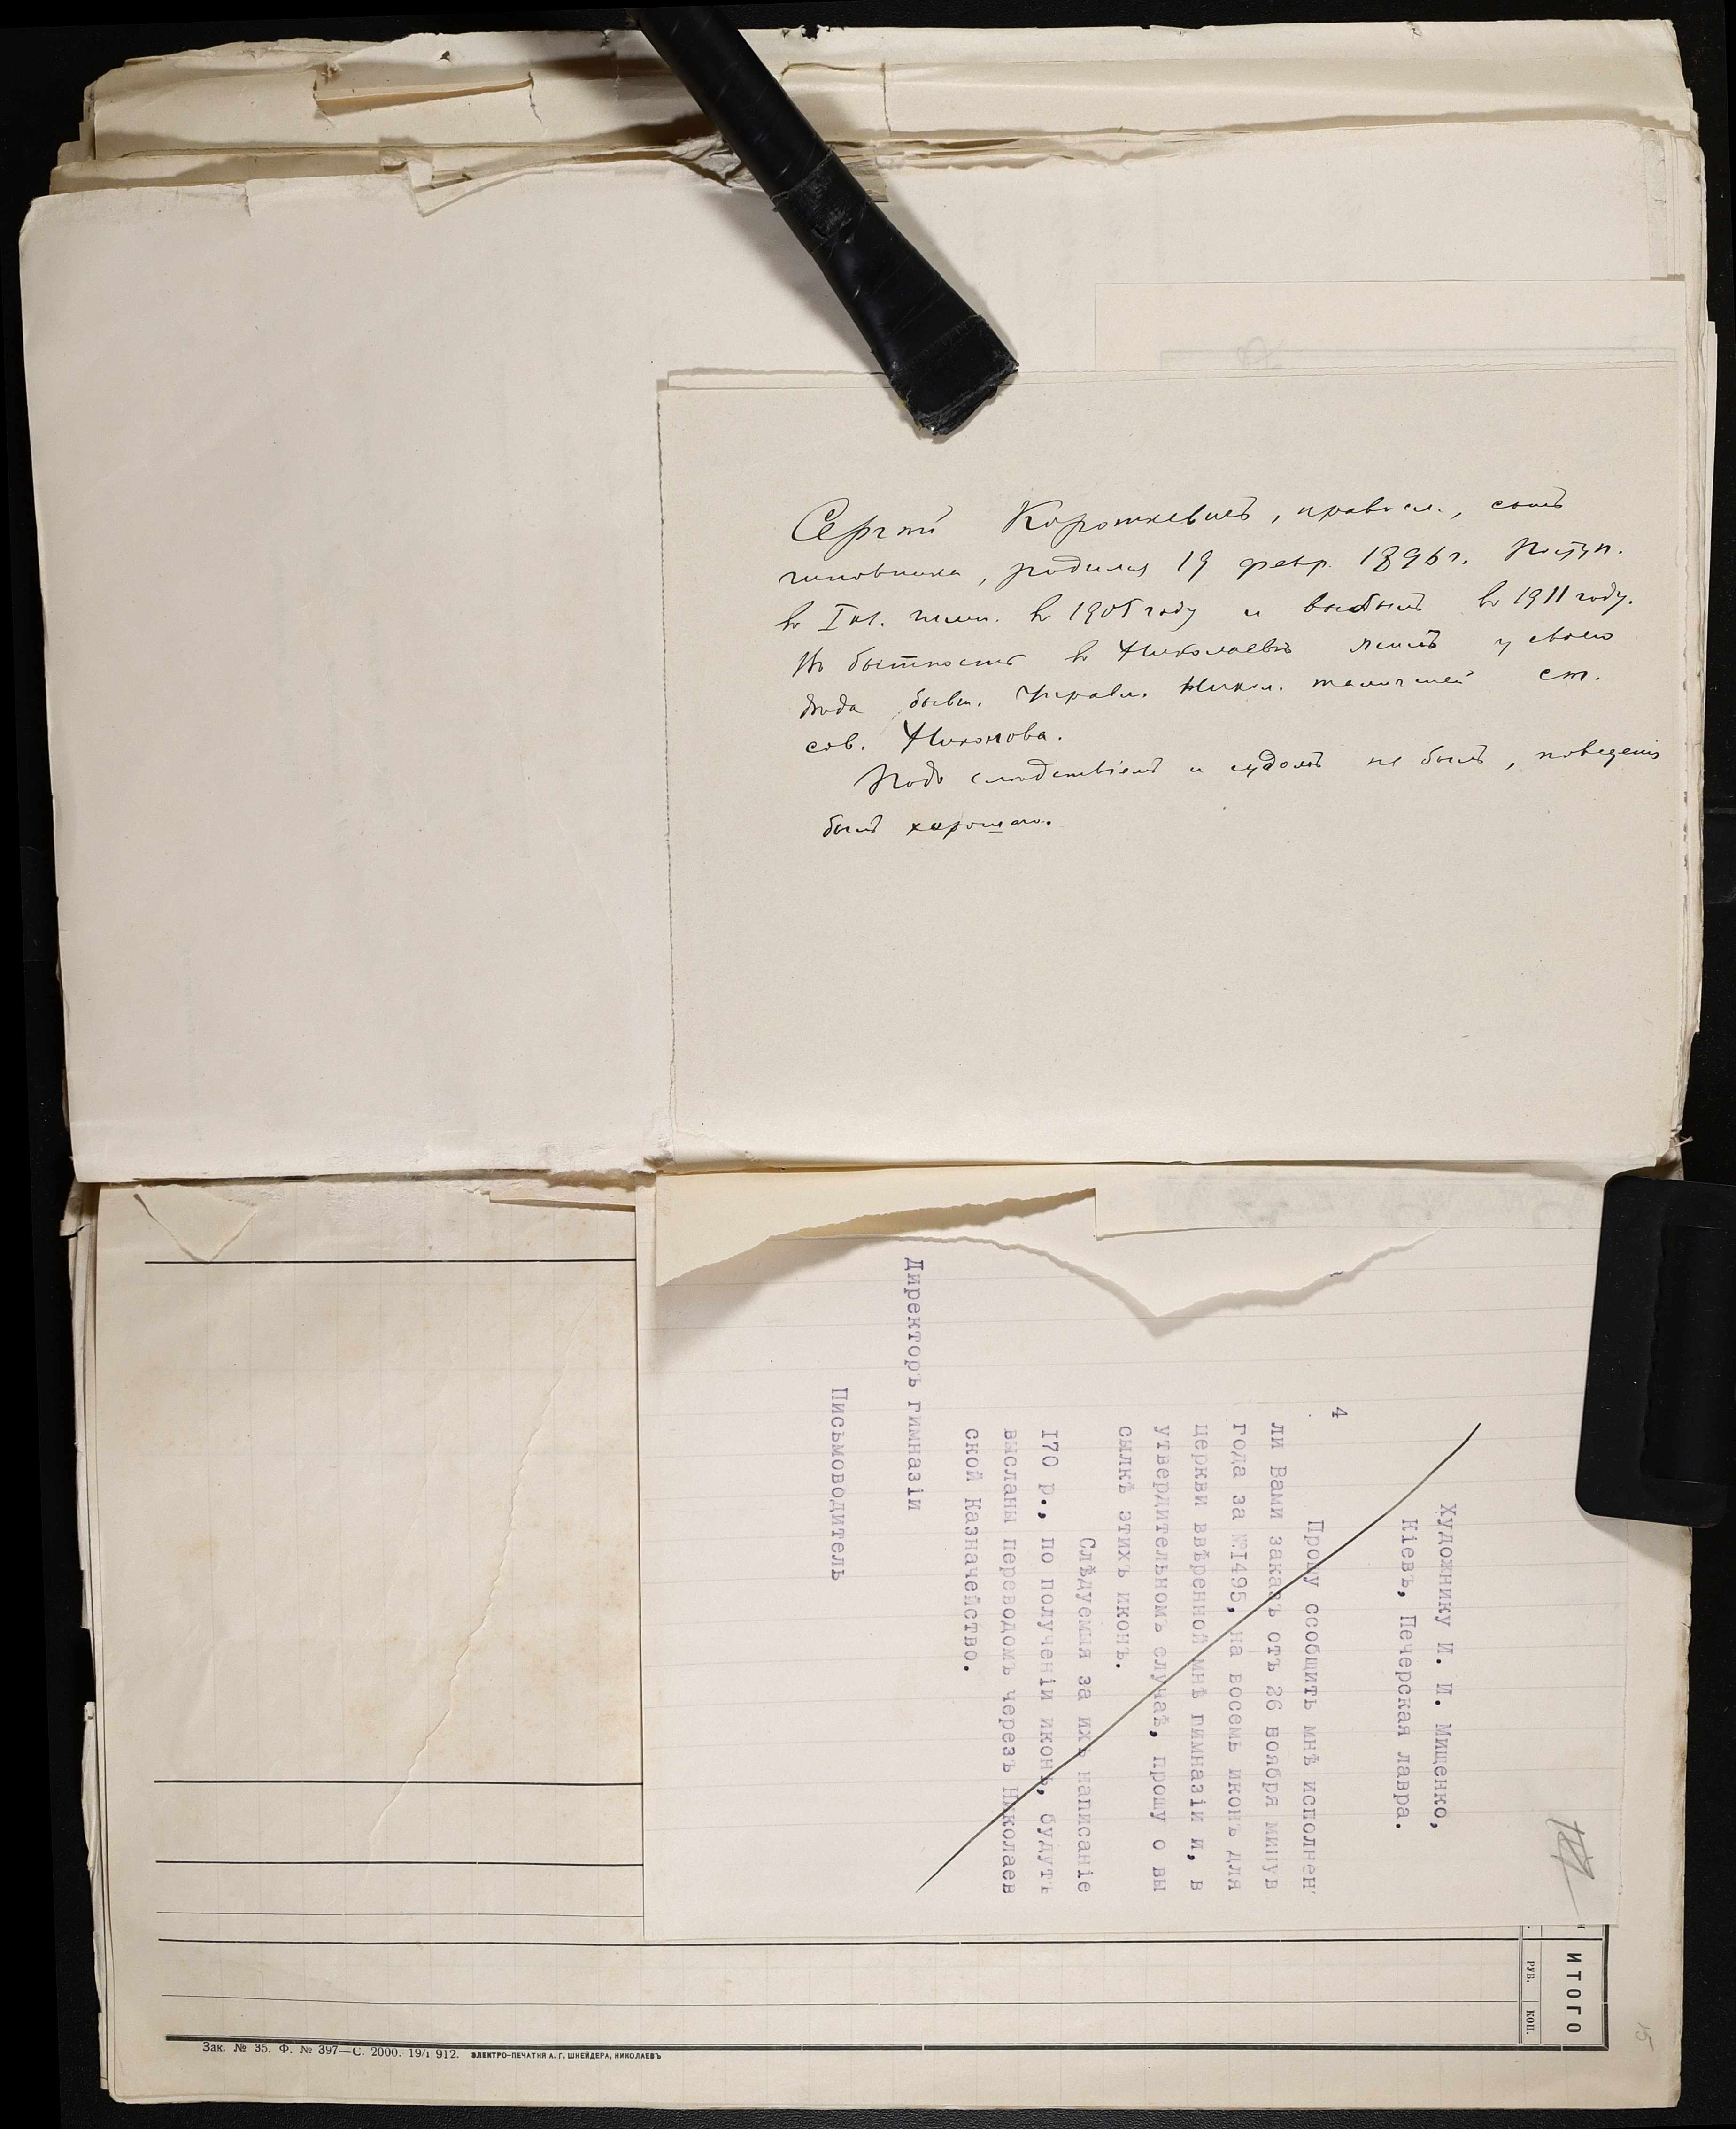 Сергѣй Короткевичъ, правосл., сынъ
чиновника, родился 19 февр. 1896 г. Поступ.
въ I кл. гимн. въ 1905 году и выбылъ въ 1911 году.
Въ бытность въ Николаевѣ жилъ у своего
дѣда бывш. Управл. Никол. таможней ст.
сов. Никонова.
Подъ слѣдствіемъ и судомъ не былъ, поведенія
былъ хорошаго.
Художнику И. И. Мищенко,
Кіевъ, Печерская лавра.
4
Прошу сообщить мнѣ исполнен
ли Вами заказъ отъ 26 ноября минув
года за №I495, на восемь иконъ для
церкви ввѣренной мнѣ гимназіи и, в
утвердительномъ случаѣ, прошу о вы
сылкѣ этихъ иконъ.
Слѣдуемыя за ихъ написаніе
I70 р., по полученіи иконъ, будутъ
высланы переводомъ черезъ Николаев
ской Казначейство.
Директоръ гимназіи
Письмоводитель
ИТОГО
РУБ. КОП.
15
Зак. № 35. Ф. № 397—С. 2000. 19/I 912. ЭЛЕКТРО-ПЕЧАТНЯ А. Г. ШНЕЙДЕРА, НИКОЛАЕВЪ